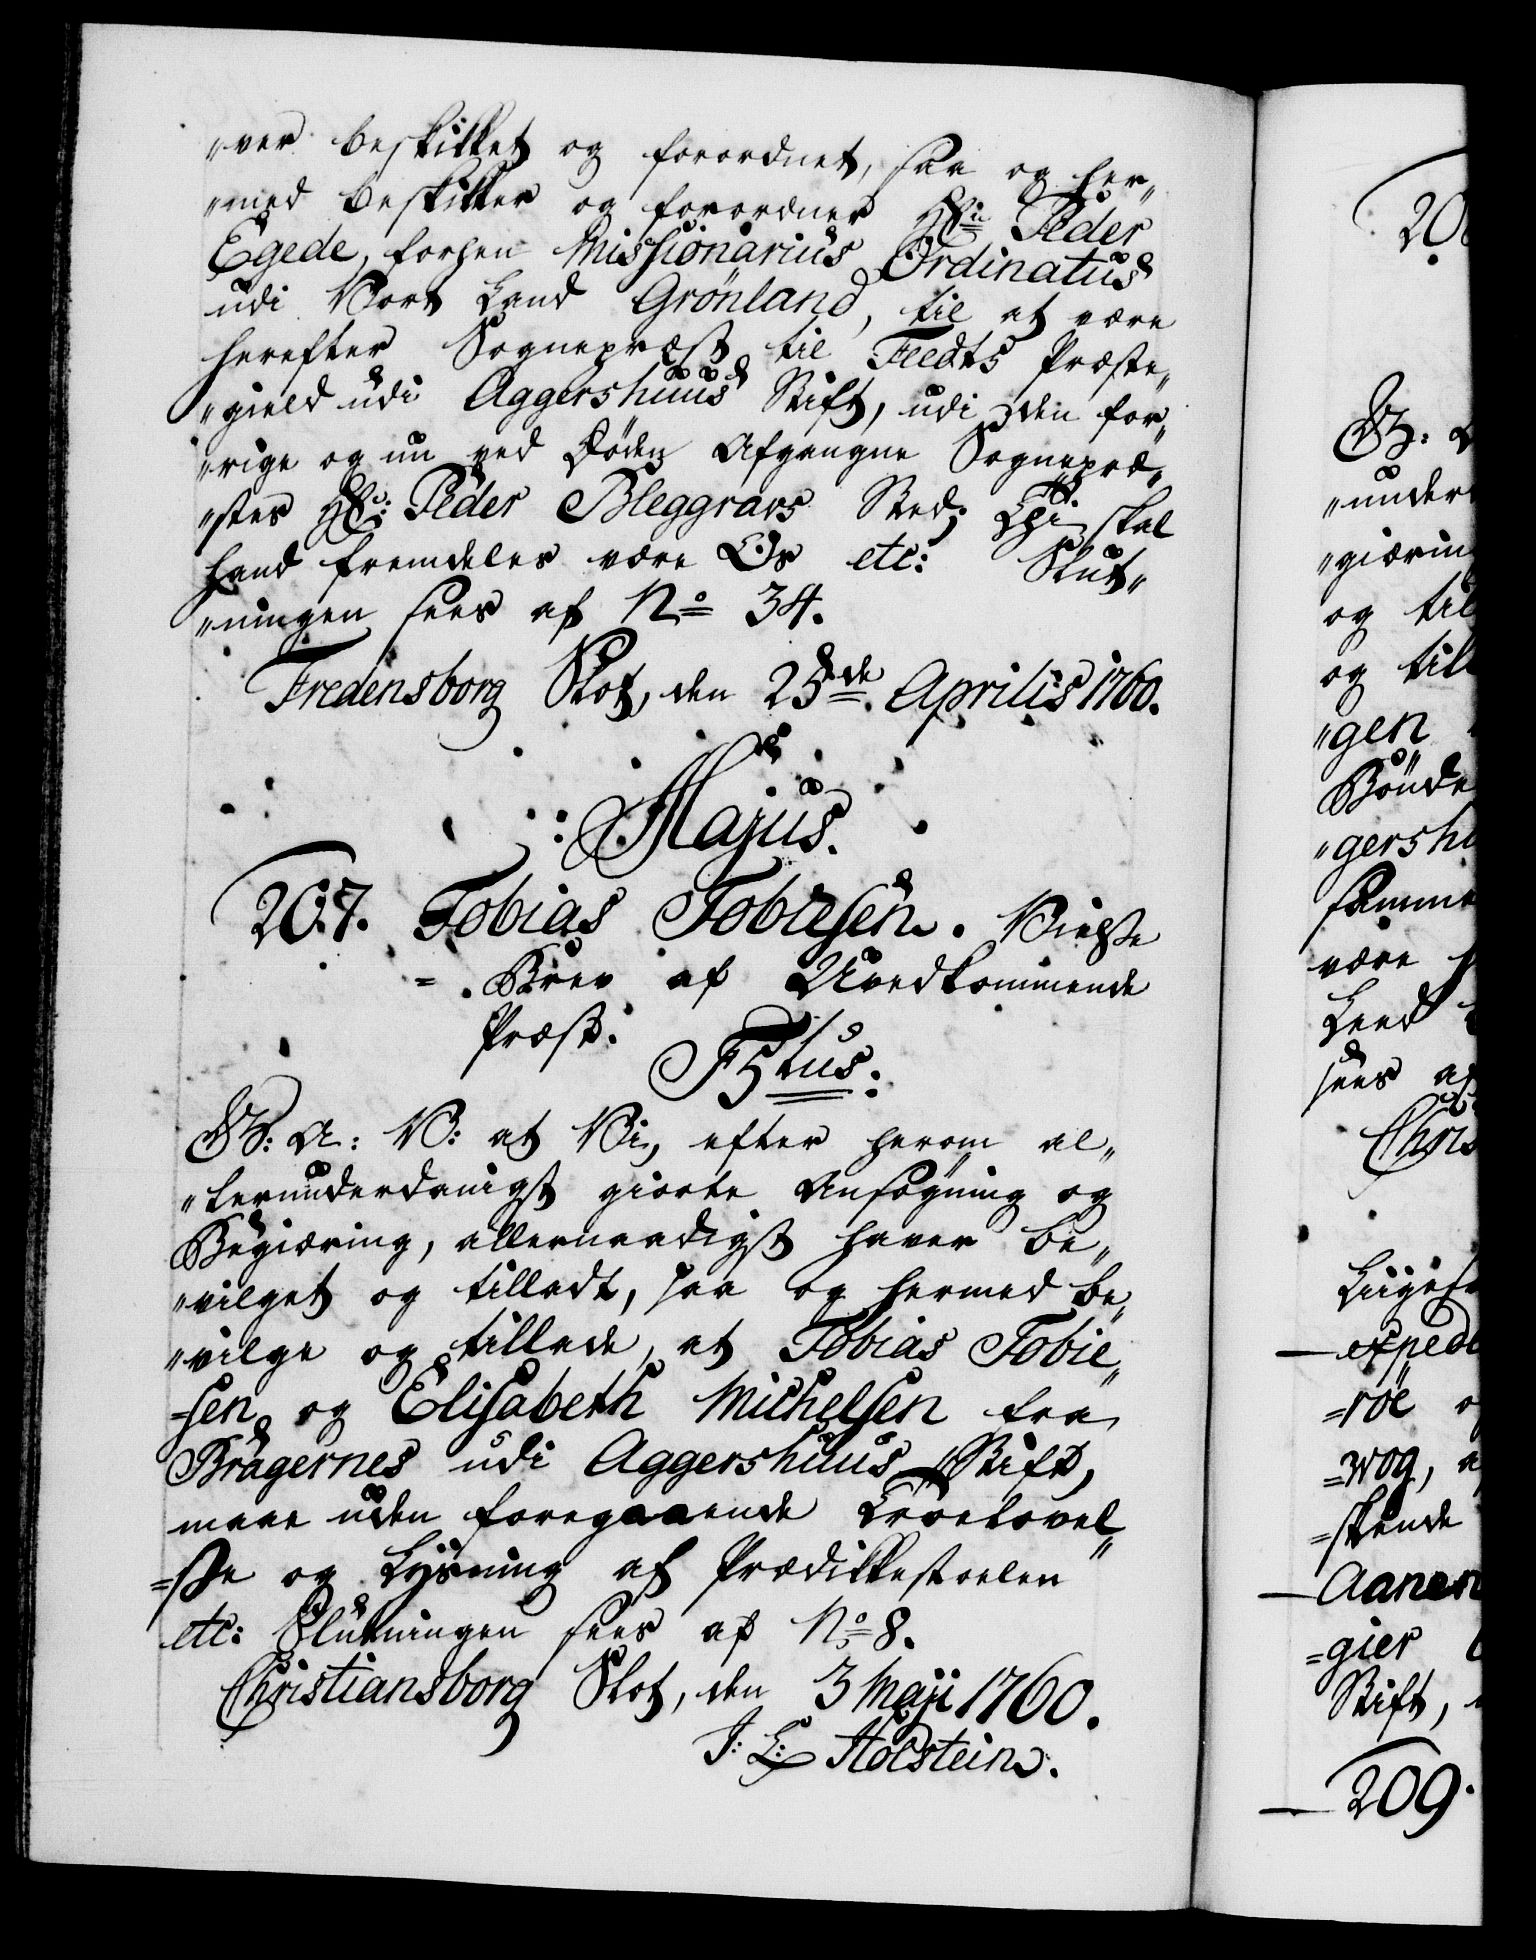 "ver beskikket og forordnet, saa og her„
"med beskikker og forordner Hr: Peder
Egede, forhen Missionarius Ordinatus
udi Vort Land Grönland, til at være
herefter Sognepræst til Feedts Præste„
"gield udi Aggershuus Stift, udi den for„
"rige og nu ved Döden Afgangne Sognepræ„
"stes Hr: Peder Bleggravs Sted; Thi skal
hand fremdeles være Os etc: Slut„
"ningen sees af No 34.
Fredensborg Slot, den 25de Aprilis 1760.
Majus.
207. Tobias Tobiesen. Vielse
= Brev af Uvedkommende
Præst.
F5tus:
G: A: V: at Vi, efter herom al„
"lerunderdanigst giorte Ansøgning og
Begiæring, allernaadigst haver be„
"vilget og tilladt, saa og hermed be„
"vilge og tillade, at Tobias Tobie„
=sen og Elisabeth Michelsen fra
Bragernes udi Aggershuus Stift,
maae uden foregaaende Troelovel„
=se og Lysning af Prædikkestoelen
etc: Slutningen sees af No 8.
Christiansborg Slot, den 3 Maji 1760.
J: L: Holstein.
20
G: A
"under
"giæring
og til
og till
"gen
Bönde
"gershu
samme
være
Leed
sees af
Chris
Liigesa
expede
=röe o
=wog, a
=skende
Aanen
=gier
Stift,
209.